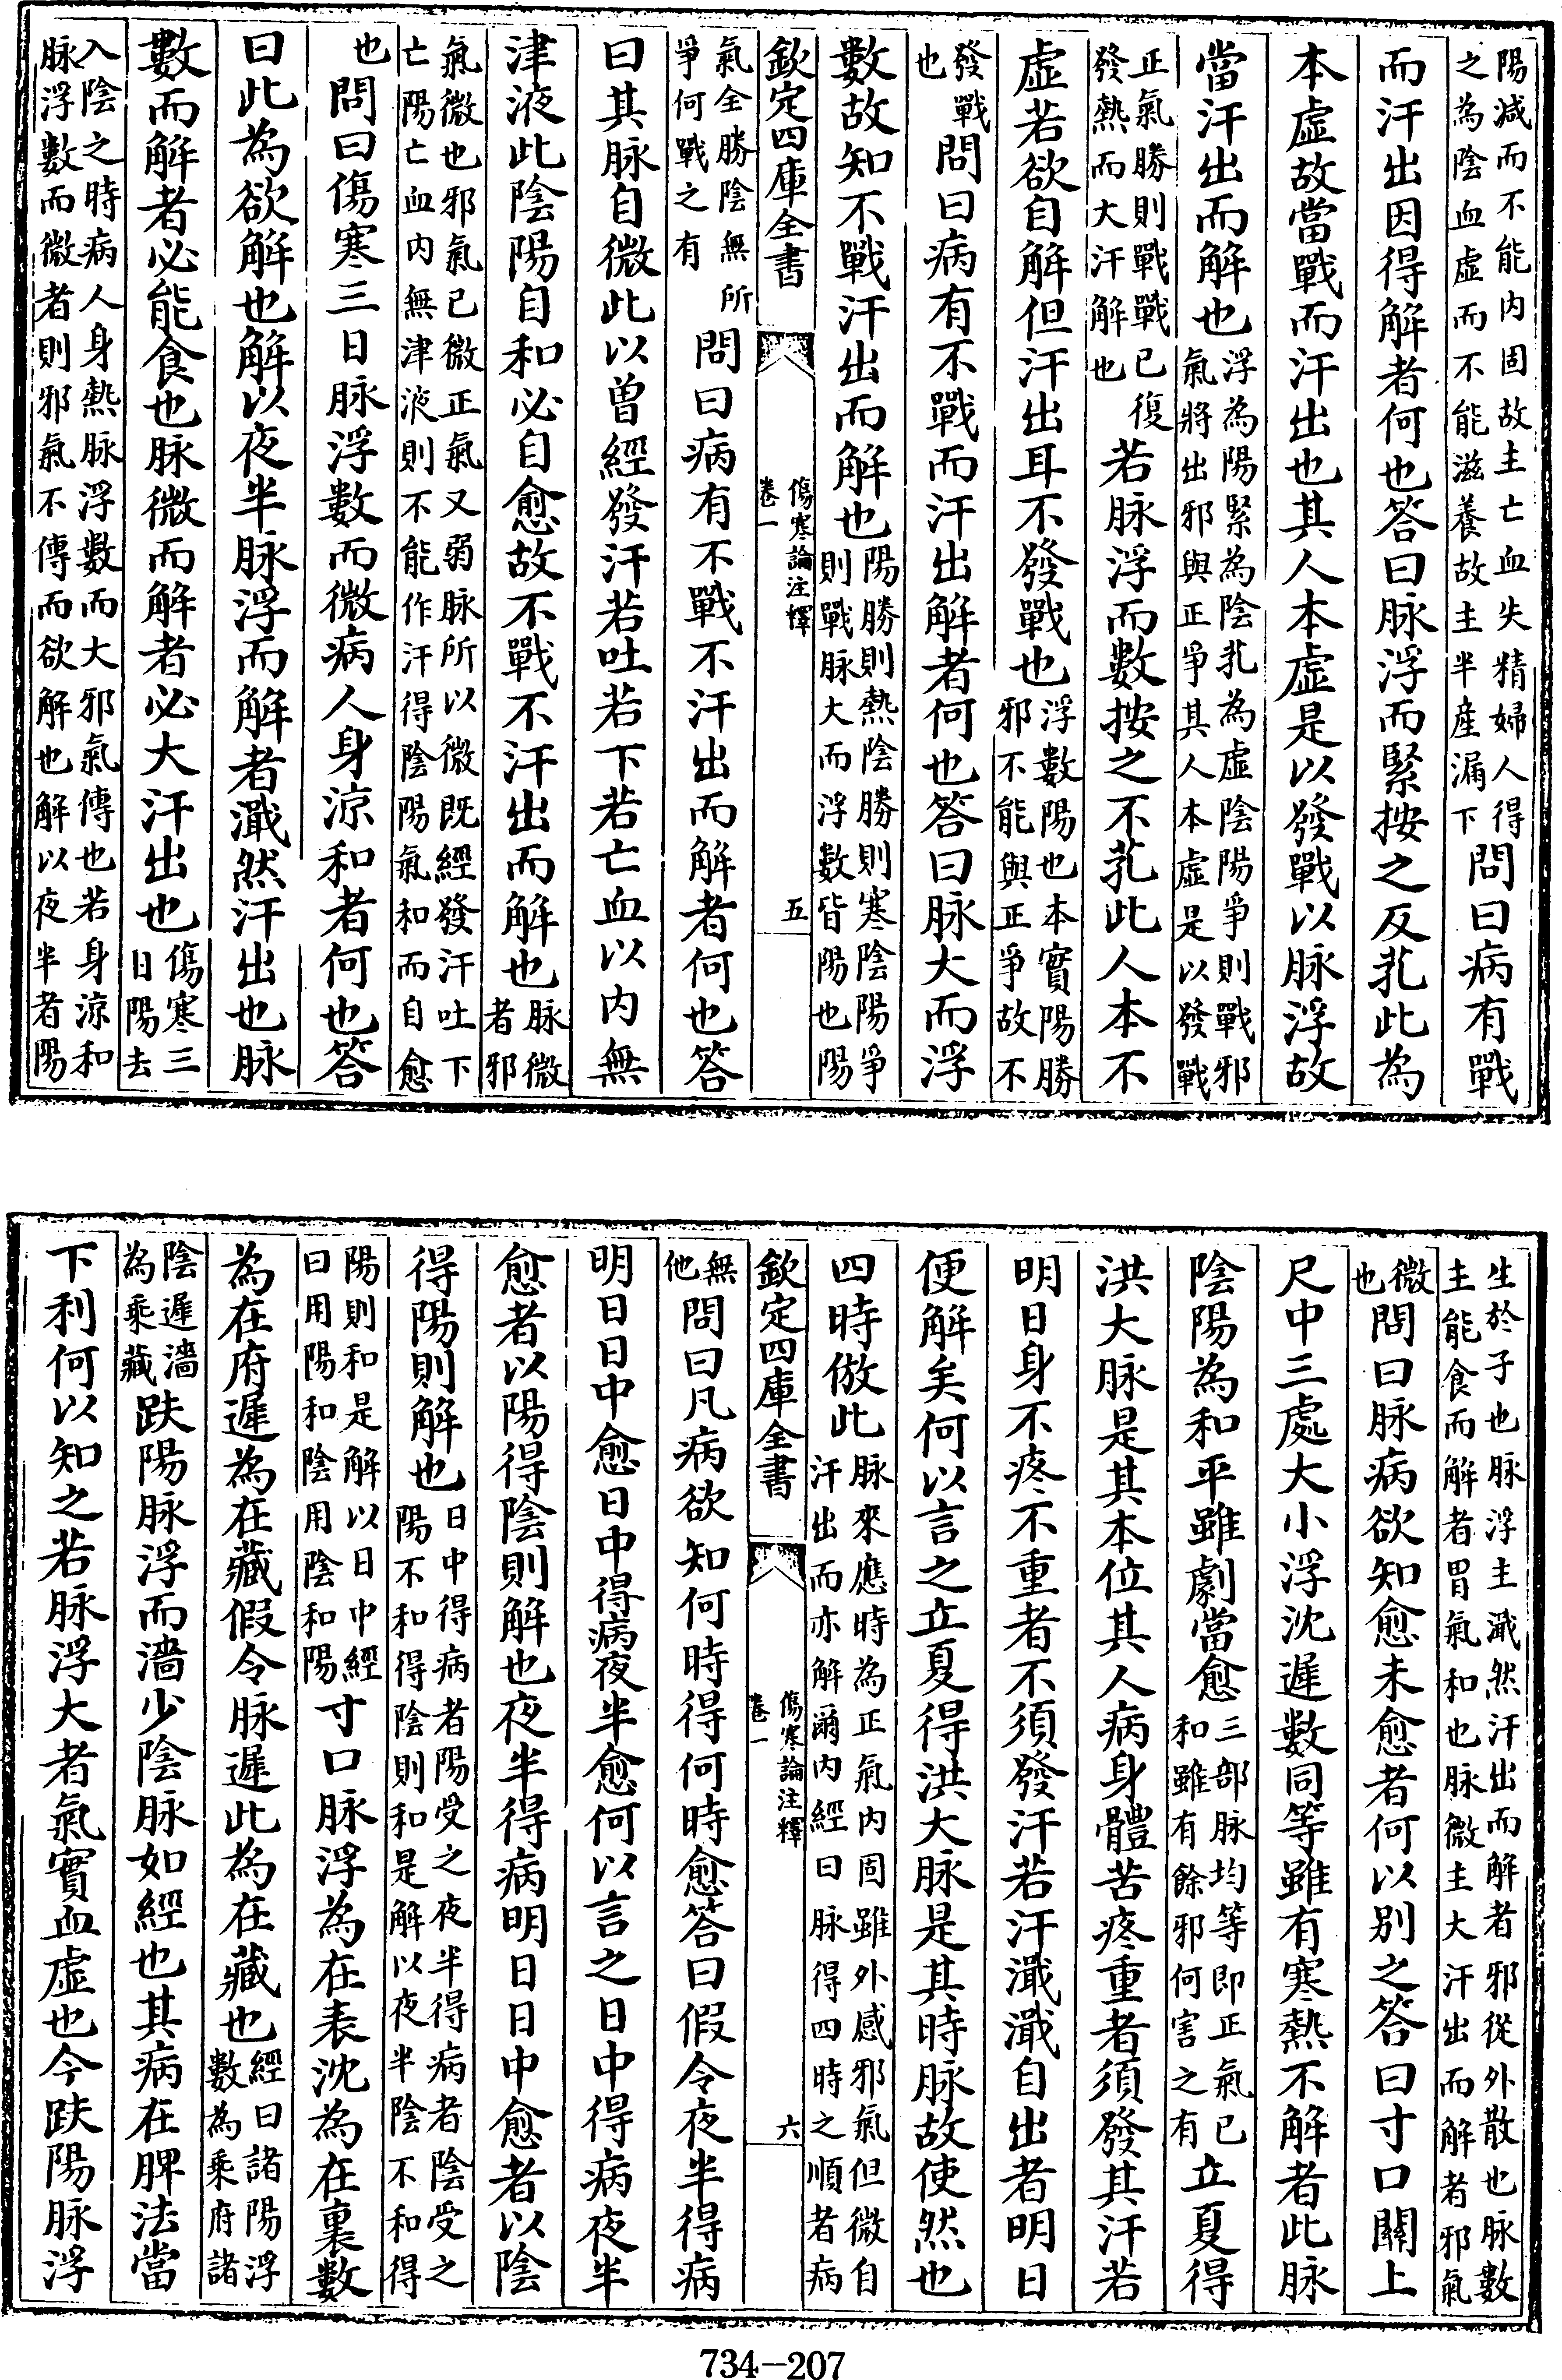 陽減而不能内固故主亡血失精婦人得
之為陰血虛而不能滋養故主半産漏下
問曰病有戰
而汗出因得解者何也答曰脉浮而緊按之反芤此為
本虛故當戰而汗出也其人本虛是以發戰以脉浮故
當汗出而解也
浮為陽緊為陰芤為虛陰陽爭則戰邪
氣將出邪與正爭其人本虛是以發戰
正氣勝則戰戰已復
發熱而大汗解也
若脉浮而數按之不芤此人本不
虛若欲自解但汗出耳不發戰也
浮數陽也本實陽勝
邪不能與正爭故不
發戰
也
問曰病有不戰而汗出解者何也答曰脉大而浮
數故知不戰汗出而解也
陽勝則熱陰勝則寒陰陽爭
則戰脉大而浮數皆陽也陽
欽定四庫全書
傷寒論注釋
卷一
五
氣全勝陰無所
爭何戰之有
問曰病有不戰不汗出而解者何也答
曰其脉自微此以曽經發汗若吐若下若亡血以内無
津液此陰陽自和必自愈故不戰不汗出而解也
脉微
者邪
氣微也邪氣已微正氣又弱脉所以微既經發汗吐下
亡陽亡血内無津液則不能作汗得陰陽氣和而自愈
也
問曰傷寒三日脉浮數而微病人身涼和者何也答
曰此為欲解也解以夜半脉浮而解者濈然汗出也脉
數而解者必能食也脉微而解者必大汗出也
傷寒三
日陽去
入陰之時病人身熱脉浮數而大邪氣傳也若身涼和
脉浮數而微者則邪氣不傳而欲解也解以夜半者陽
生於子也脉浮主濈然汗出而解者邪從外散也脉數
主能食而解者胃氣和也脉微主大汗出而解者邪氣
微
也
問曰脉病欲知愈未愈者何以别之答曰寸口關上
尺中三處大小浮沈遲數同等雖有寒熱不解者此脉
陰陽為和平雖劇當愈
三部脉均等即正氣已
和雖有餘邪何害之有
立夏得
洪大脉是其本位其人病身體苦疼重者須發其汗若
明日身不疼不重者不須發汗若汗濈濈自出者明日
便解矣何以言之立夏得洪大脉是其時脉故使然也
四時倣此
脉來應時為正氣内固雖外感邪氣但微自
汗出而亦解爾内經曰脉得四時之順者病
欽定四庫全書
傷寒論注釋
卷一
六
無
他
問曰凡病欲知何時得何時愈答曰假令夜半得病
明日日中愈日中得病夜半愈何以言之日中得病夜半
愈者以陽得陰則解也夜半得病明日日中愈者以陰
得陽則解也
日中得病者陽受之夜半得病者陰受之
陽不和得陰則和是解以夜半陰不和得
陽則和是解以日中經
曰用陽和陰用陰和陽
寸口脉浮為在表沈為在裏數
為在府遲為在藏假令脉遲此為在藏也
經曰諸陽浮
數為乘府諸
陰遲濇
為乘藏
趺陽脉浮而濇少陰脉如經也其病在脾法當
下利何以知之若脉浮大者氣實血虛也今趺陽脉浮
734-207